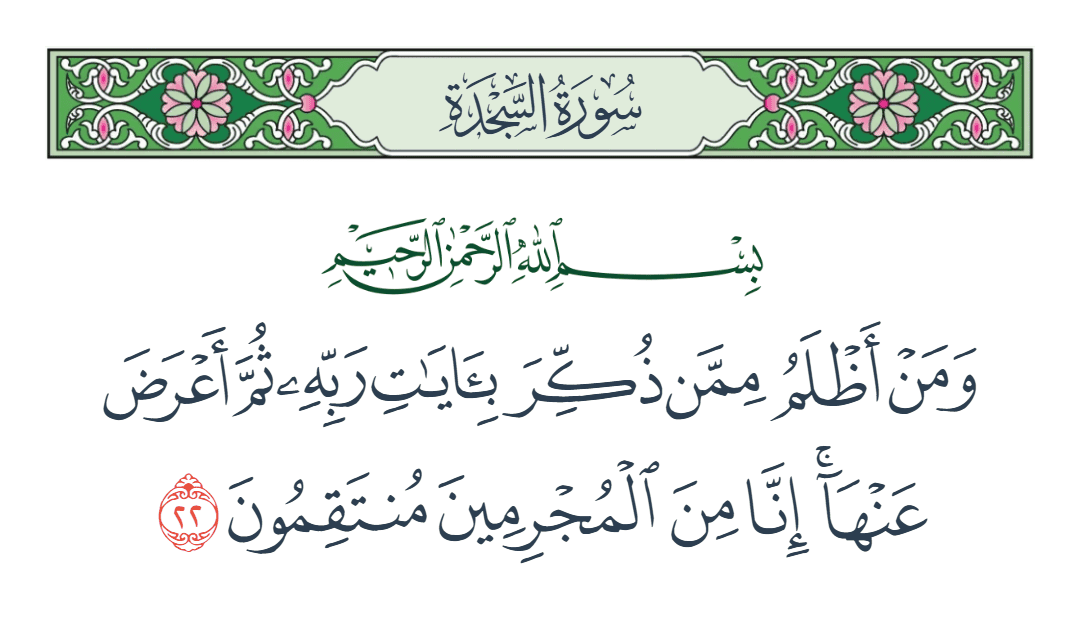 سُورَةُ السَّجْدَةِ
بِسْمِ ٱللَّهِ ٱلرَّحْمَٰنِ ٱلرَّحِيمِ
وَمَنْ أَظْلَمُ مِمَّن ذُكِّرَ بِـَٔايَٰتِ رَبِّهِۦ ثُمَّ أَعْرَضَ
عَنْهَآۚ إِنَّا مِنَ ٱلْمُجْرِمِينَ مُنتَقِمُونَ ٢٢